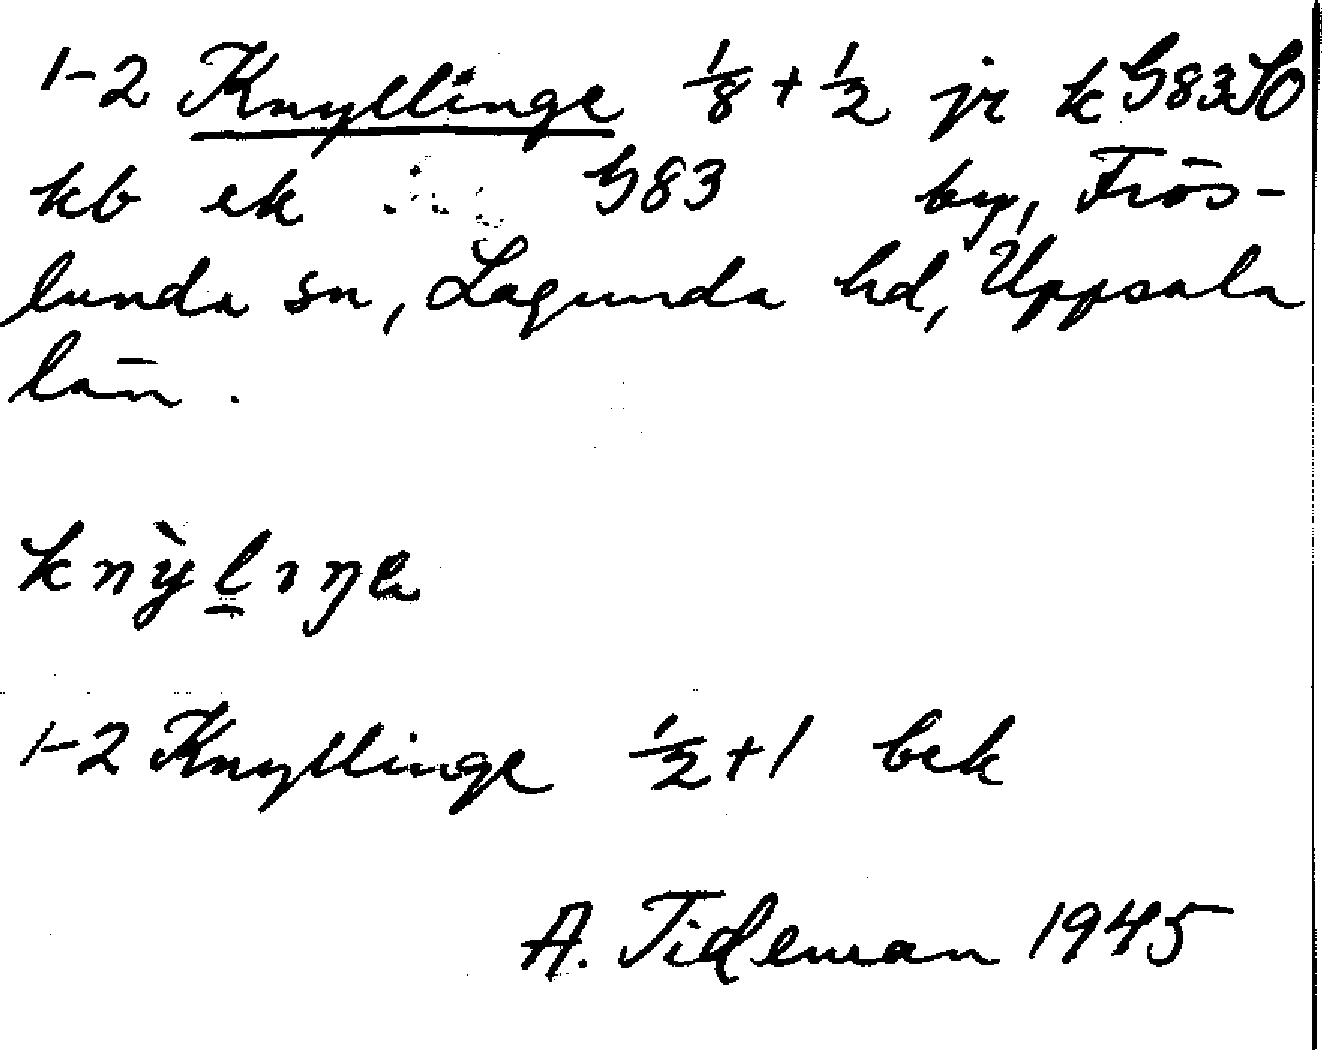 1-2 Knyllinge 1/8 + 1/2 jr k G83SO
kb ek G83 by, Frös-
lunda sn, Lagunda hd, Uppsala
län.
knỳl̲ıŋe
1-2 Knyllinge 1/2 + 1 bek
A. Tideman 1945